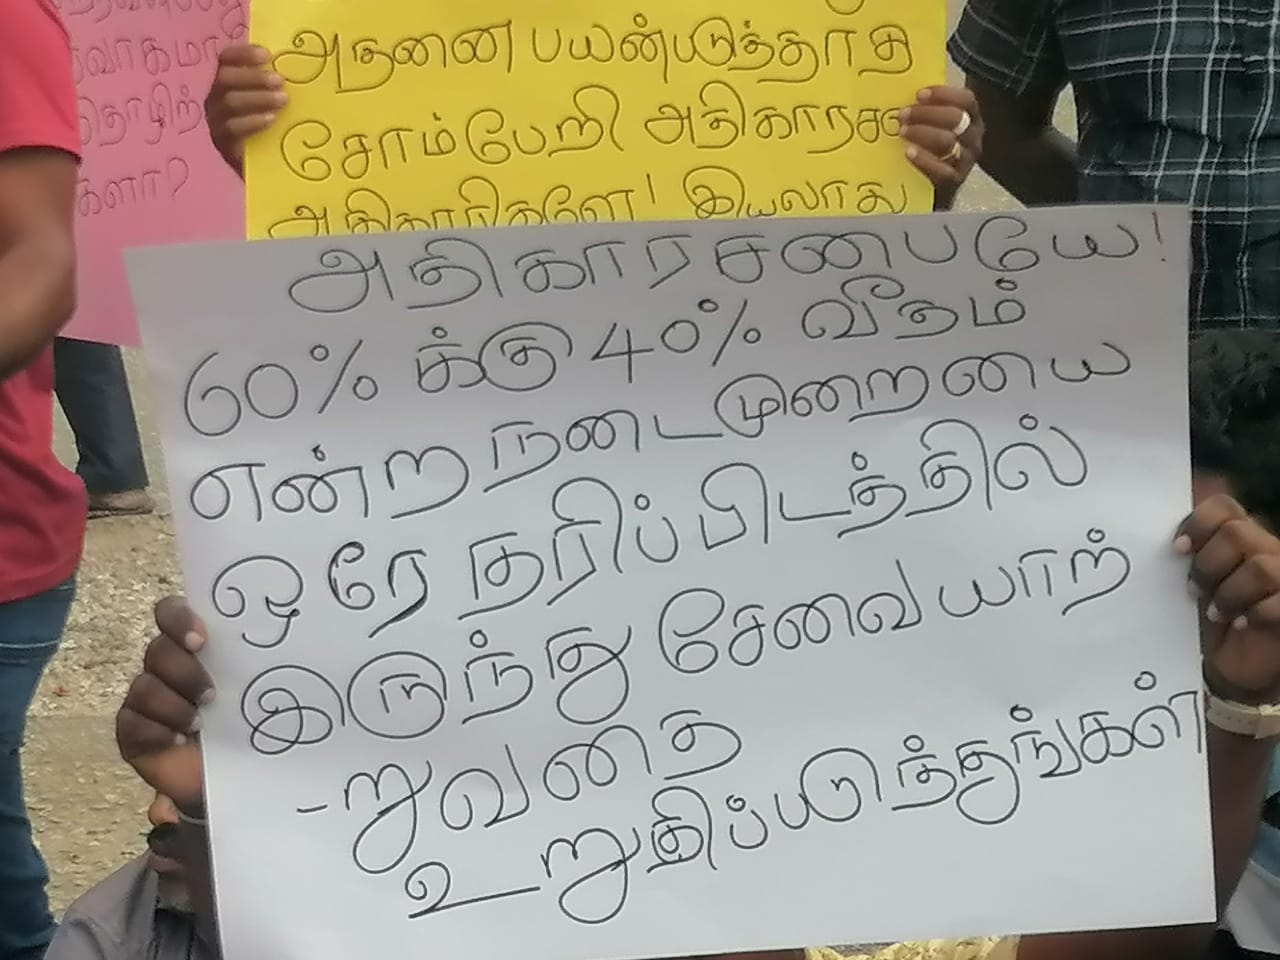 வாகமா
தொழிற்
களா?
அதனை பயன்படுத்தாத
சோம்பேறி அதிகாரச
அதிகாரிகளே! இயலாது
அதிகாரசபையே!
60% க்கு 40% வீதம்
என்ற நடைமுறையை
ஒரே தரிப்பிடத்தில்
இருந்து சேவையாற்
-றுவதை
உறுதிப்படுத்துங்கள்